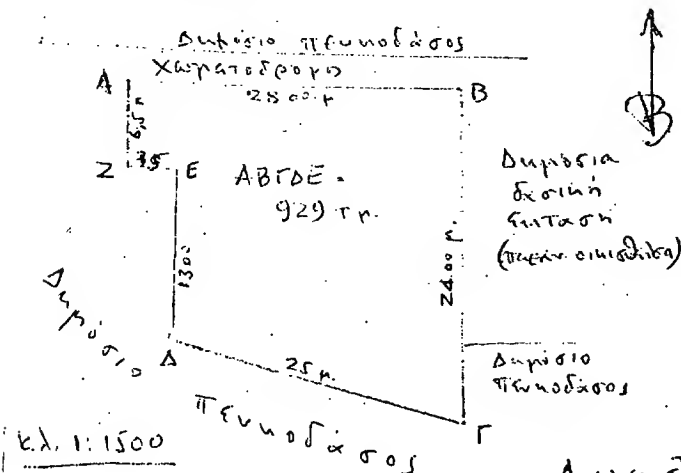 Δημόσιο πευκοδάσος
Χωματοδρομο
Α
28 00 μ
Β
Β
6,5
Ζ
3,5
Ε
ΑΒΓΔΕ =
929 τμ.
Δημόσια
δασική
έκταση
1300
24 00 μ.
Δημόσιο
Δ
25 μ.
Δημόσιο
πευκοδάσος
πευκοδάσος
Γ
κλ. 1:1500